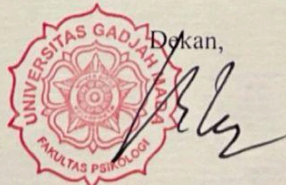 Dekan,
UNIVERSITAS GADJAH MADA
FAKULTAS PSIKOLOGI